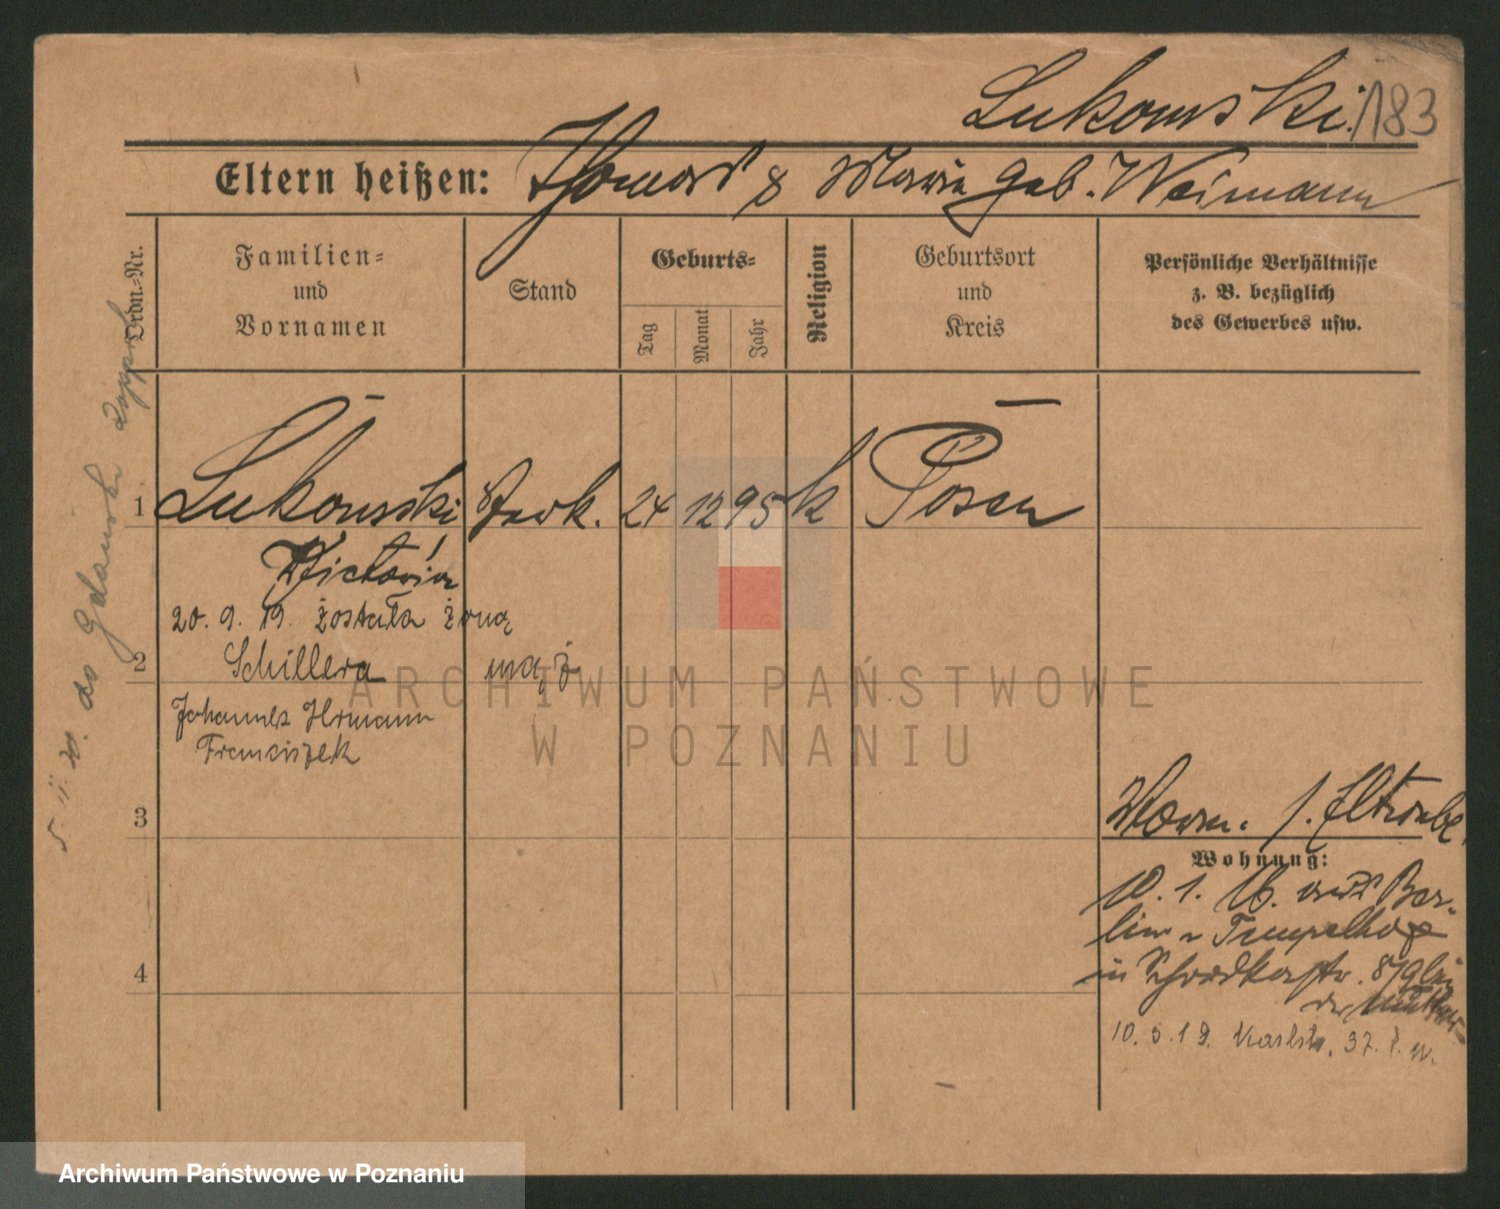 Lukowski. 183
Eltern heißen: Thomas & Maria geb. Weimann
Ordn.-Nr.
Familien-
und
Vornamen
Stand
Geburts-
Tag
Monat
Jahr
Religion
Geburtsort
und
Kreis
Persönliche Verhältnisse
z. B. bezüglich
des Gewerbes usw.
1 Lukowski 24 12 95 k Posen
Wictoria
20. 9. 19. została żoną
2 Schillera mąż
Johannes Hrmann
Franciszek
3
Wohnung:
10. 1. 16. aus Ber-
lin Tempelhof
in 8/9 bei
der Mutter
10. 5. 19. 37.
4
do Gdańska
ARCHIWUM PAŃSTWOWE
W POZNANIU
Archiwum Państwowe w Poznaniu